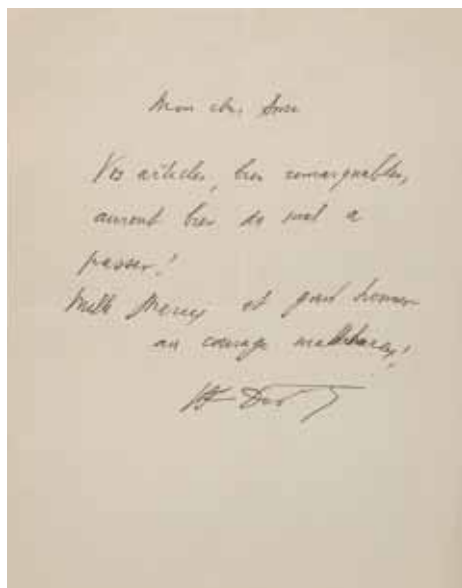 Mon ch. Ami
Vos articles, bien remarquables,
auront bien du mal a
passer !
Mille Mercis et grand honneur
au courage malheureux !